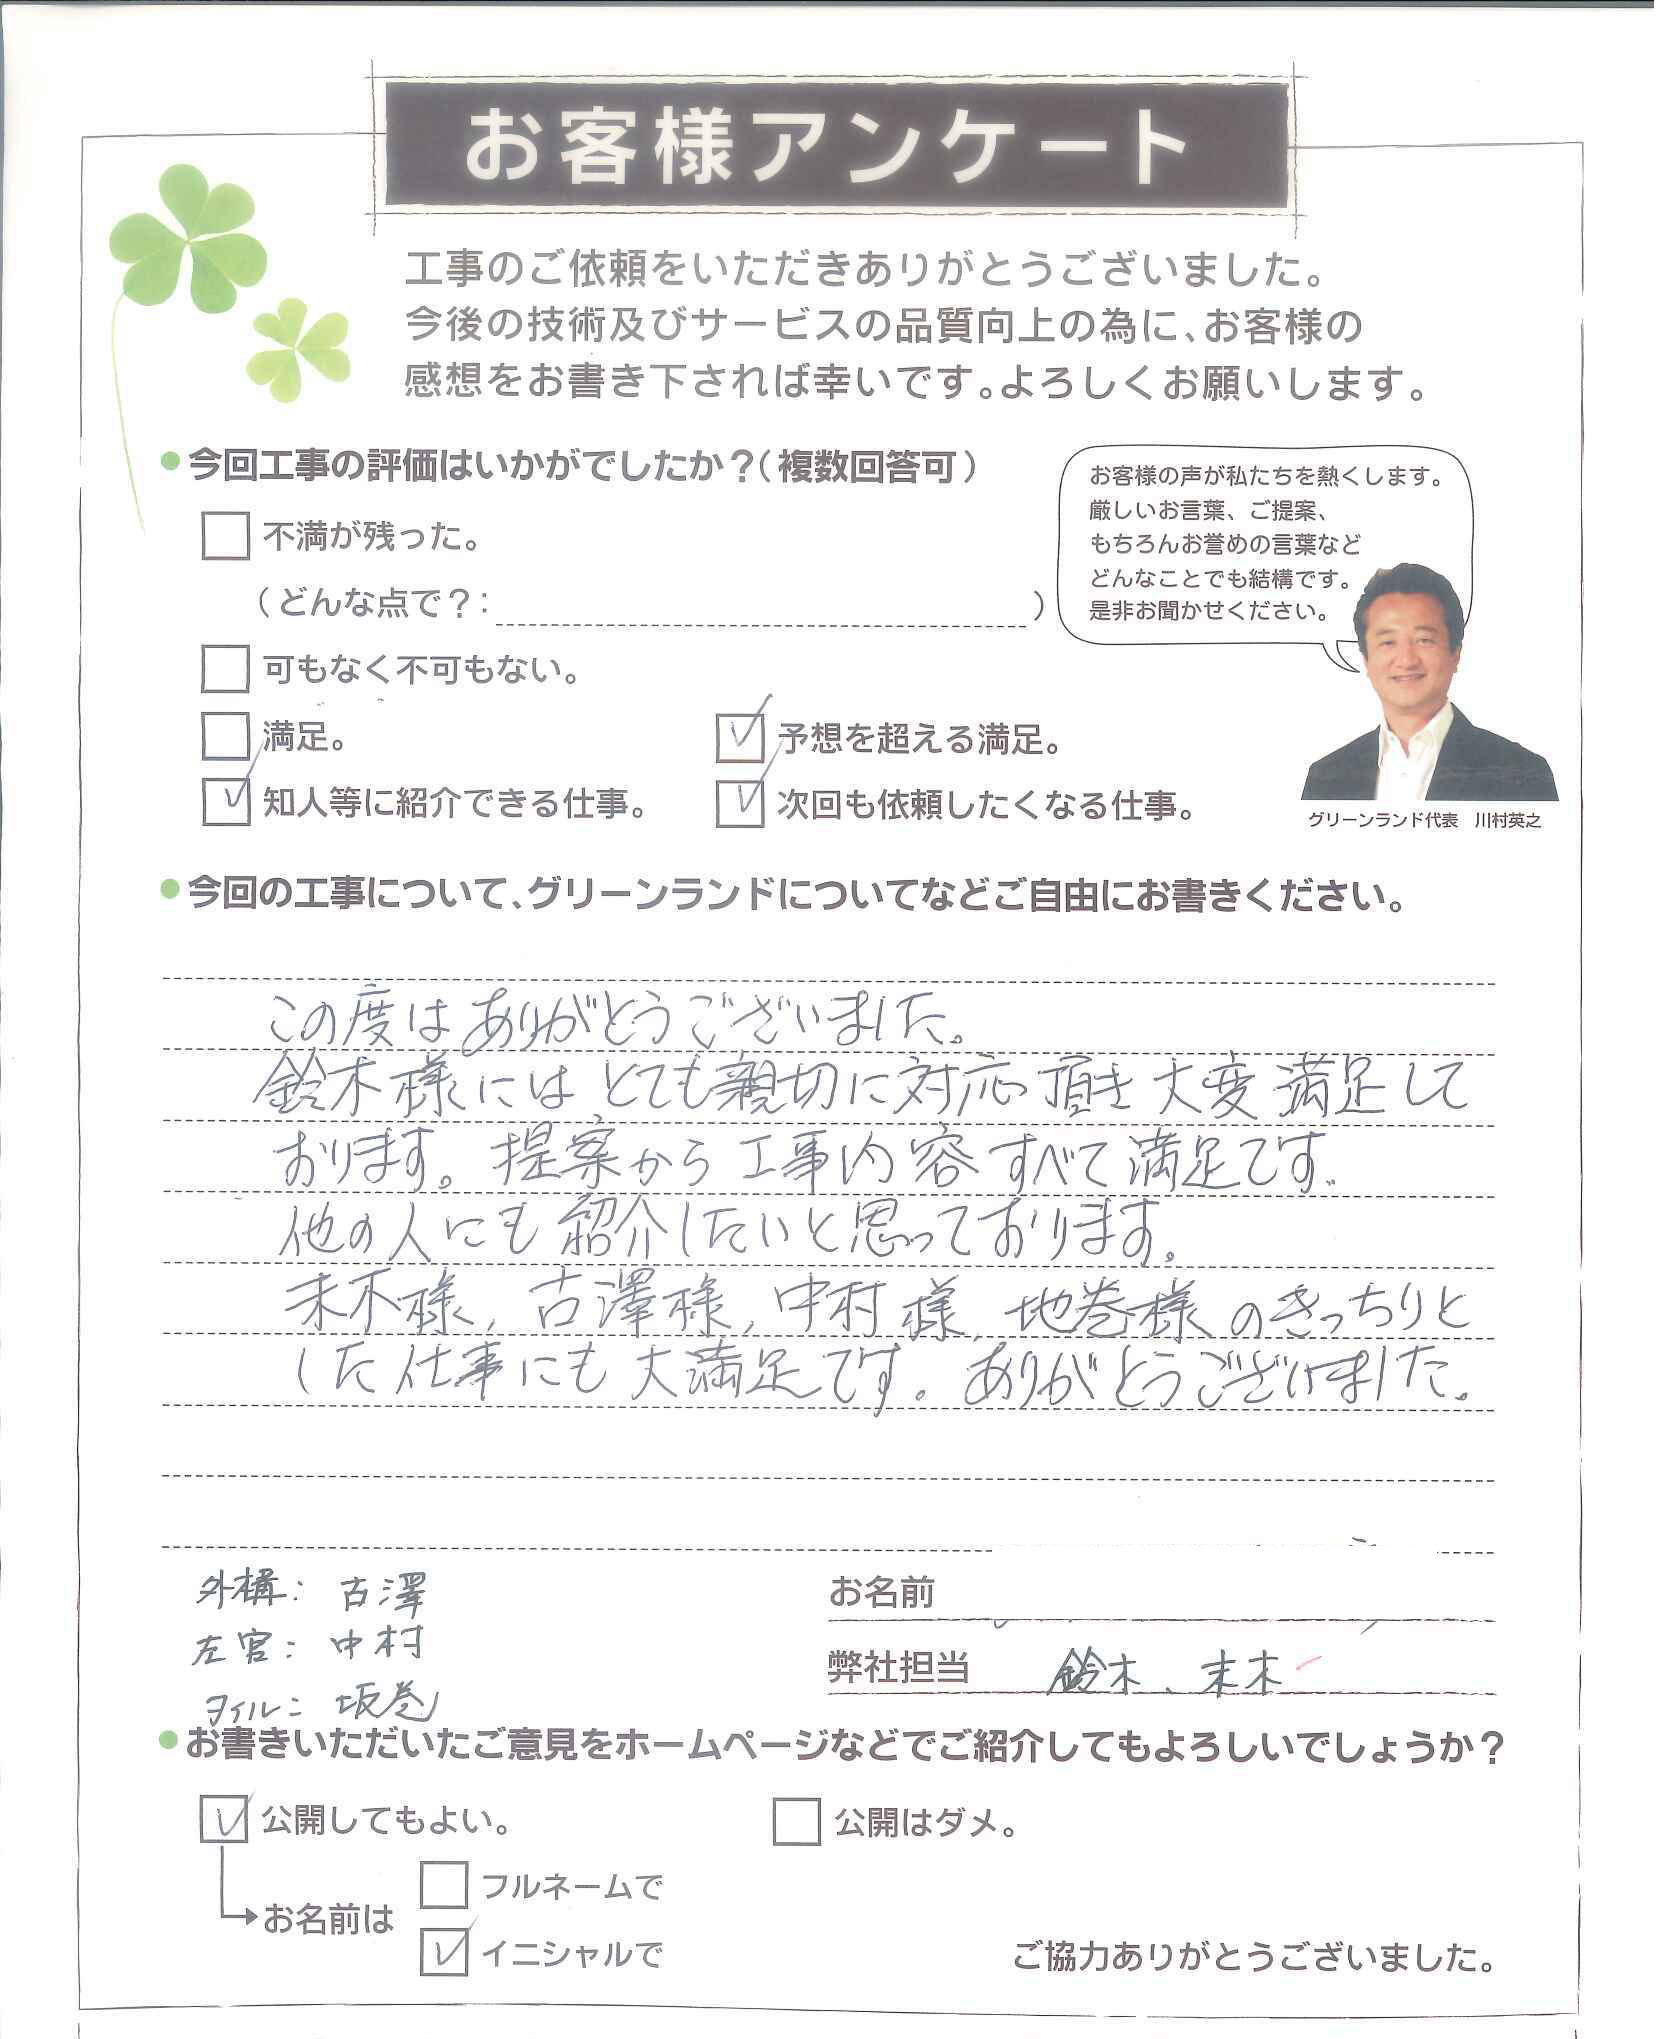 お客様アンケート
工事のご依頼をいただきありがとうございました。
今後の技術及びサービスの品質向上の為に、お客様の
感想をお書き下されば幸いです。よろしくお願いします。
●今回工事の評価はいかがでしたか？（複数回答可）
お客様の声が私たちを熱くします。
厳しいお言葉、ご提案、
もちろんお誉めの言葉など
どんなことでも結構です。
是非お聞かせください。
不満が残った。
（どんな点で？：　）
可もなく不可もない。
満足。
予想を超える満足。
知人等に紹介できる仕事。
次回も依頼したくなる仕事。
グリーンランド代表　川村英之
●今回の工事について、グリーンランドについてなどご自由にお書きください。
この度はありがとうございました。
鈴木様にはとても親切に対応頂き大変満足して
おります。提案から工事内容すべて満足です。
他の人にも紹介したいと思っております。
末木様、古澤様、中村様、地巻様のきっちりと
した仕事にも大満足です。ありがとうございました。
外構：古澤
左官：中村
タイル：坂巻
お名前
弊社担当　鈴木、末木
●お書きいただいたご意見をホームページなどでご紹介してもよろしいでしょうか？
公開してもよい。
公開はダメ。
お名前は
フルネームで
イニシャルで
ご協力ありがとうございました。